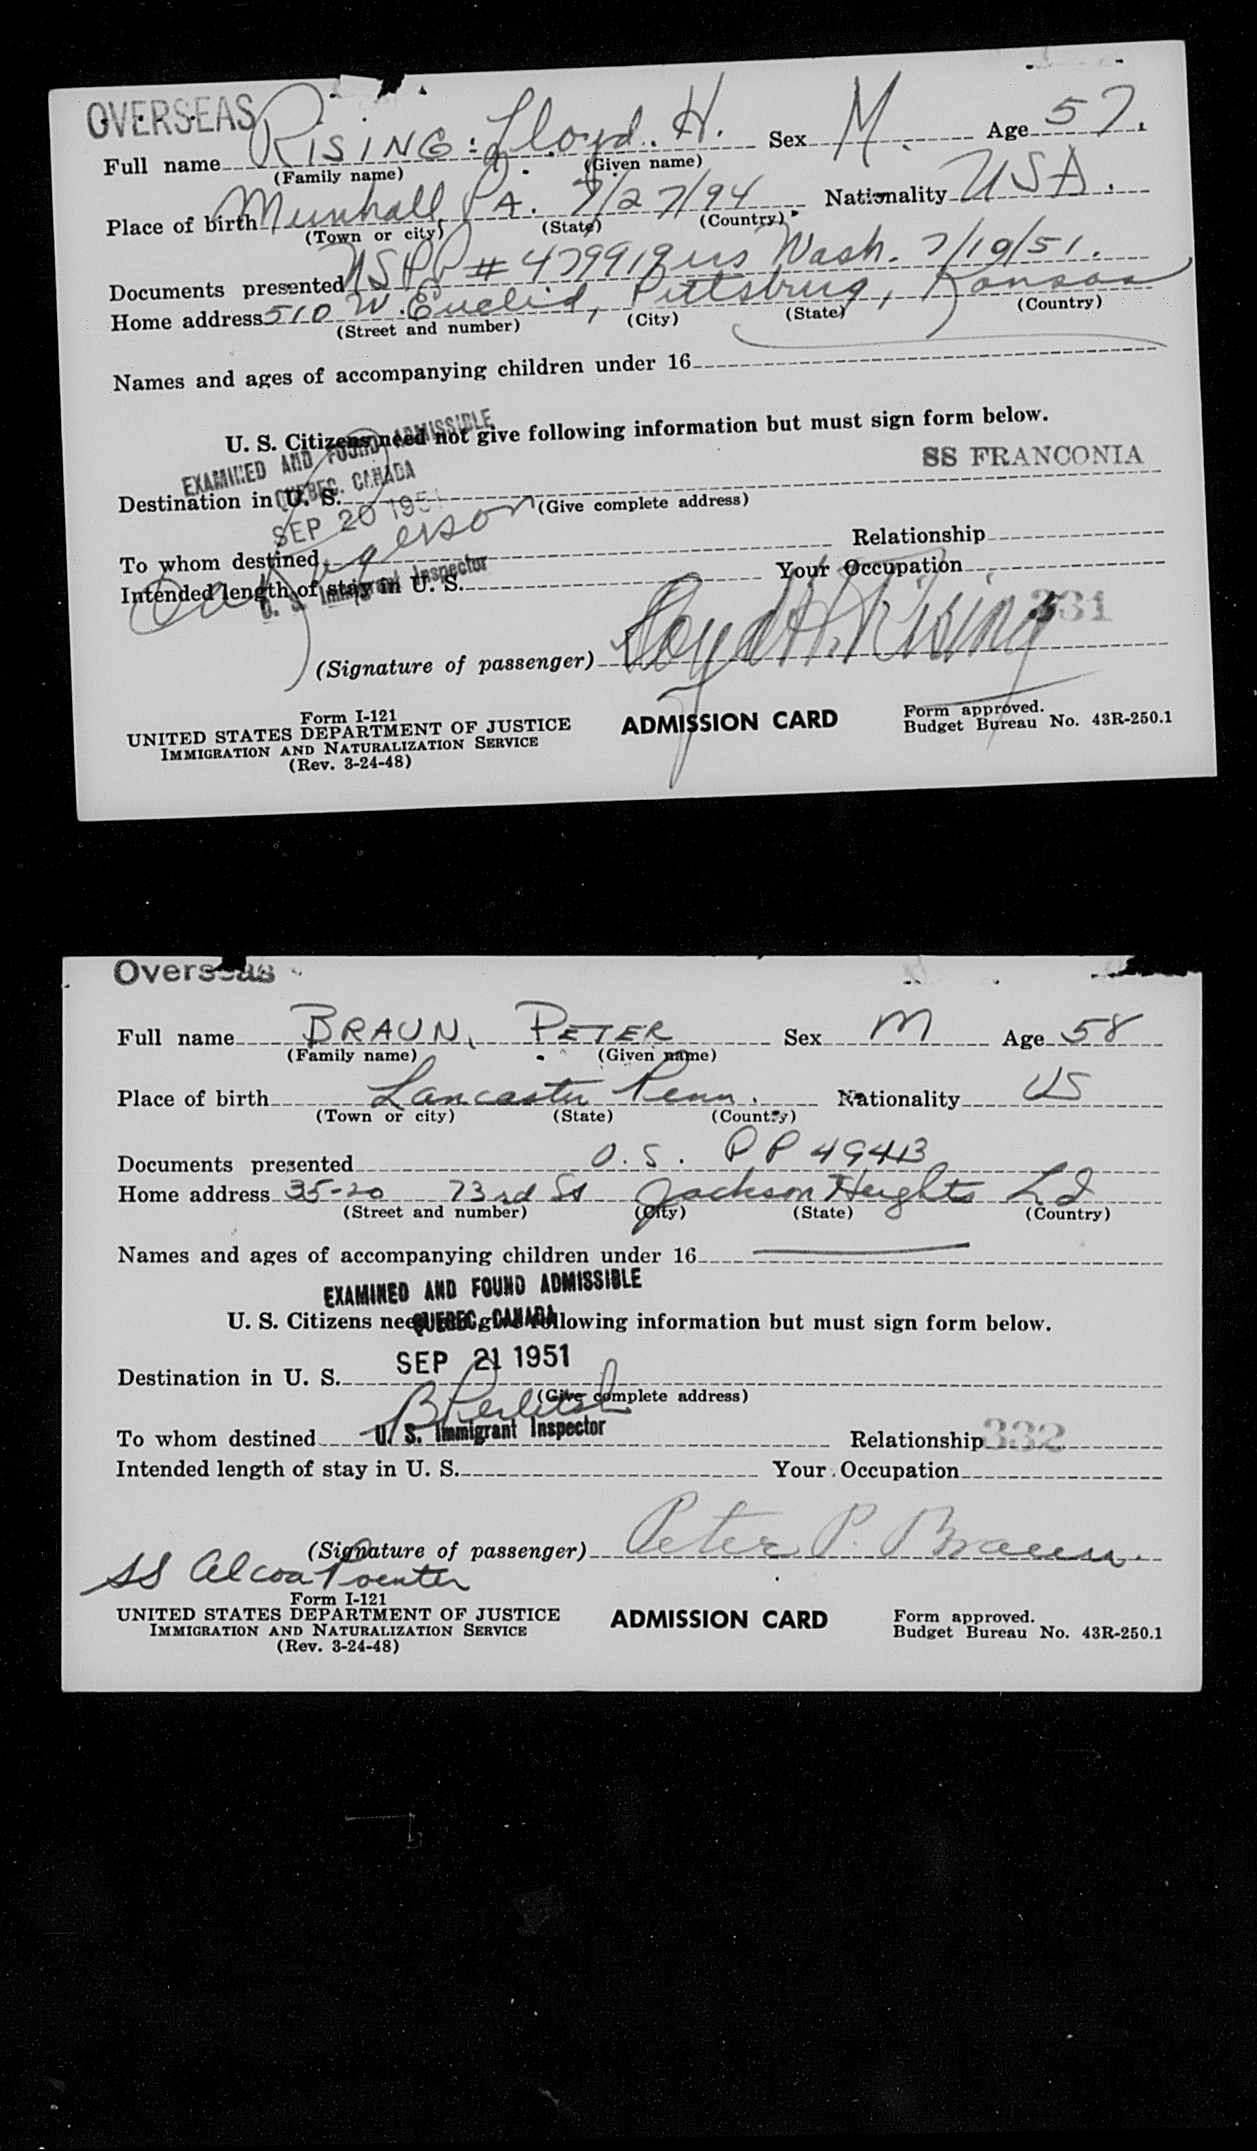 OVERSEAS
Full name RISING: Lloyd. H. Sex M. Age 57.
(Family name) (Given name)
Place of birth Munhall, PA. 7/27/94 Nationality USA.
(Town or city) (State) (Country)
Documents presented USPP # 479919 Wash. 7/19/51.
Home address 510 W. Euclid, Pittsburg, Kansas
(Street and number) (City) (State) (Country)
Names and ages of accompanying children under 16
U. S. Citizens need not give following information but must sign form below.
EXAMINED AND FOUND ADMISSIBLE
QUEBEC, CANADA
SS FRANCONIA
Destination in U. S.
(Give complete address)
SEP 20 1951
To whom destined Relationship
Intended length of stay in U. S. Your Occupation
U. S. Immigrant Inspector
331
(Signature of passenger) Lloyd H. Rising
Form I-121
UNITED STATES DEPARTMENT OF JUSTICE
IMMIGRATION AND NATURALIZATION SERVICE
(Rev. 3-24-48)
ADMISSION CARD
Form approved.
Budget Bureau No. 43R-250.1
Overseas
Full name BRAUN, PETER Sex M Age 58
(Family name) (Given name)
Place of birth Lancaster Penn. Nationality US
(Town or city) (State) (Country)
Documents presented U.S. PP 49413
Home address 35-20 73rd St Jackson Heights L I
(Street and number) (City) (State) (Country)
Names and ages of accompanying children under 16
EXAMINED AND FOUND ADMISSIBLE
U. S. Citizens need not give following information but must sign form below.
QUEBEC, CANADA
SEP 21 1951
Destination in U. S.
(Give complete address)
U. S. Immigrant Inspector
To whom destined Relationship 332
Intended length of stay in U. S. Your Occupation
(Signature of passenger) Peter P. Braun
SS Alcoa Pointer
Form I-121
UNITED STATES DEPARTMENT OF JUSTICE
IMMIGRATION AND NATURALIZATION SERVICE
(Rev. 3-24-48)
ADMISSION CARD
Form approved.
Budget Bureau No. 43R-250.1